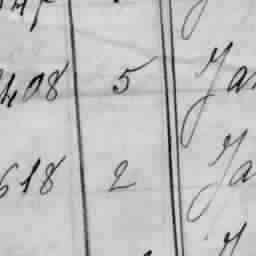 408 5 Ja
618 2 Ja